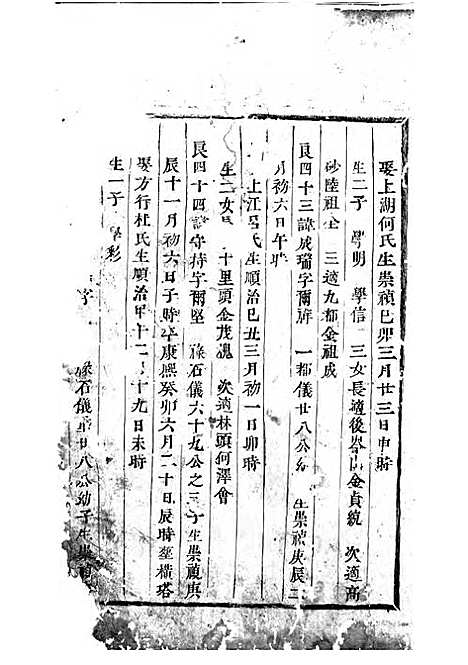 娶上湖何氏生崇禎己卯三月廿三日申時
生二子 學明 學信 三女長適後岑山金貞統 次適高
砂陸祖 三適九都金祖成
良四十三諱成瑞字爾 一都儀廿八公 生崇禎庚辰二
月初六日午時
上江 氏生順治己丑三月初一日卯時
生二女 十里頭金茂 次適林頭何澤會
良四十四 守持字爾堅 祿石儀六十九公之三子生崇禎庚
辰十一月初六日子時卒康熙癸卯六月二十日辰時葬橫塔
娶方行杜氏生順治甲 十二月十九日未時
生一子 學彩
字 祿石儀 廿八公幼子生崇禎